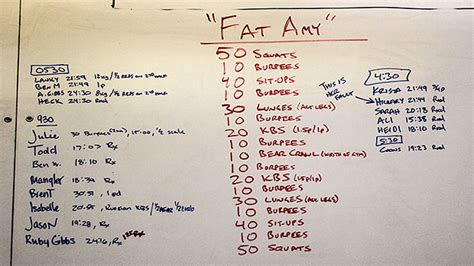 "FAT AMY"
50 SQUATS
10 BURPEES
40 SIT-UPS
10 BURPEES
30 LUNGES (ALT LEGS)
10 BURPEES
20 KBS (1.5p/1p)
10 BURPEES
10 BEAR CRAWL
10 BURPEES
20 KBS (1.5p/1p)
10 BURPEES
30 LUNGES (ALT LEGS)
10 BURPEES
40 SIT-UPS
10 BURPEES
50 SQUATS
0530
LANKY 21:59
BEN M 21:49 1p
A. GIBBS 24:30
HECK 24:30 Rod
930
Julie 30 Burpees 15:00, 1/2 scale
Todd 17:03 Rx
Ben w. 18:10 Rx
Mangler 18:34 Rx
Brent 30:51, 1 pd
Isabelle 20:55, Russian KBS
Jason 19:28, Rx
Ruby Gibbs 24:16, Rx
THIS IS
HER FAULT
4:30
KRISSA 21:49
HILLARY 21:49 Rod
SARAH 20:18 Rod
ALI 15:38 Rod
HEIDI 18:10 Rod
5:30
19:23 Rod